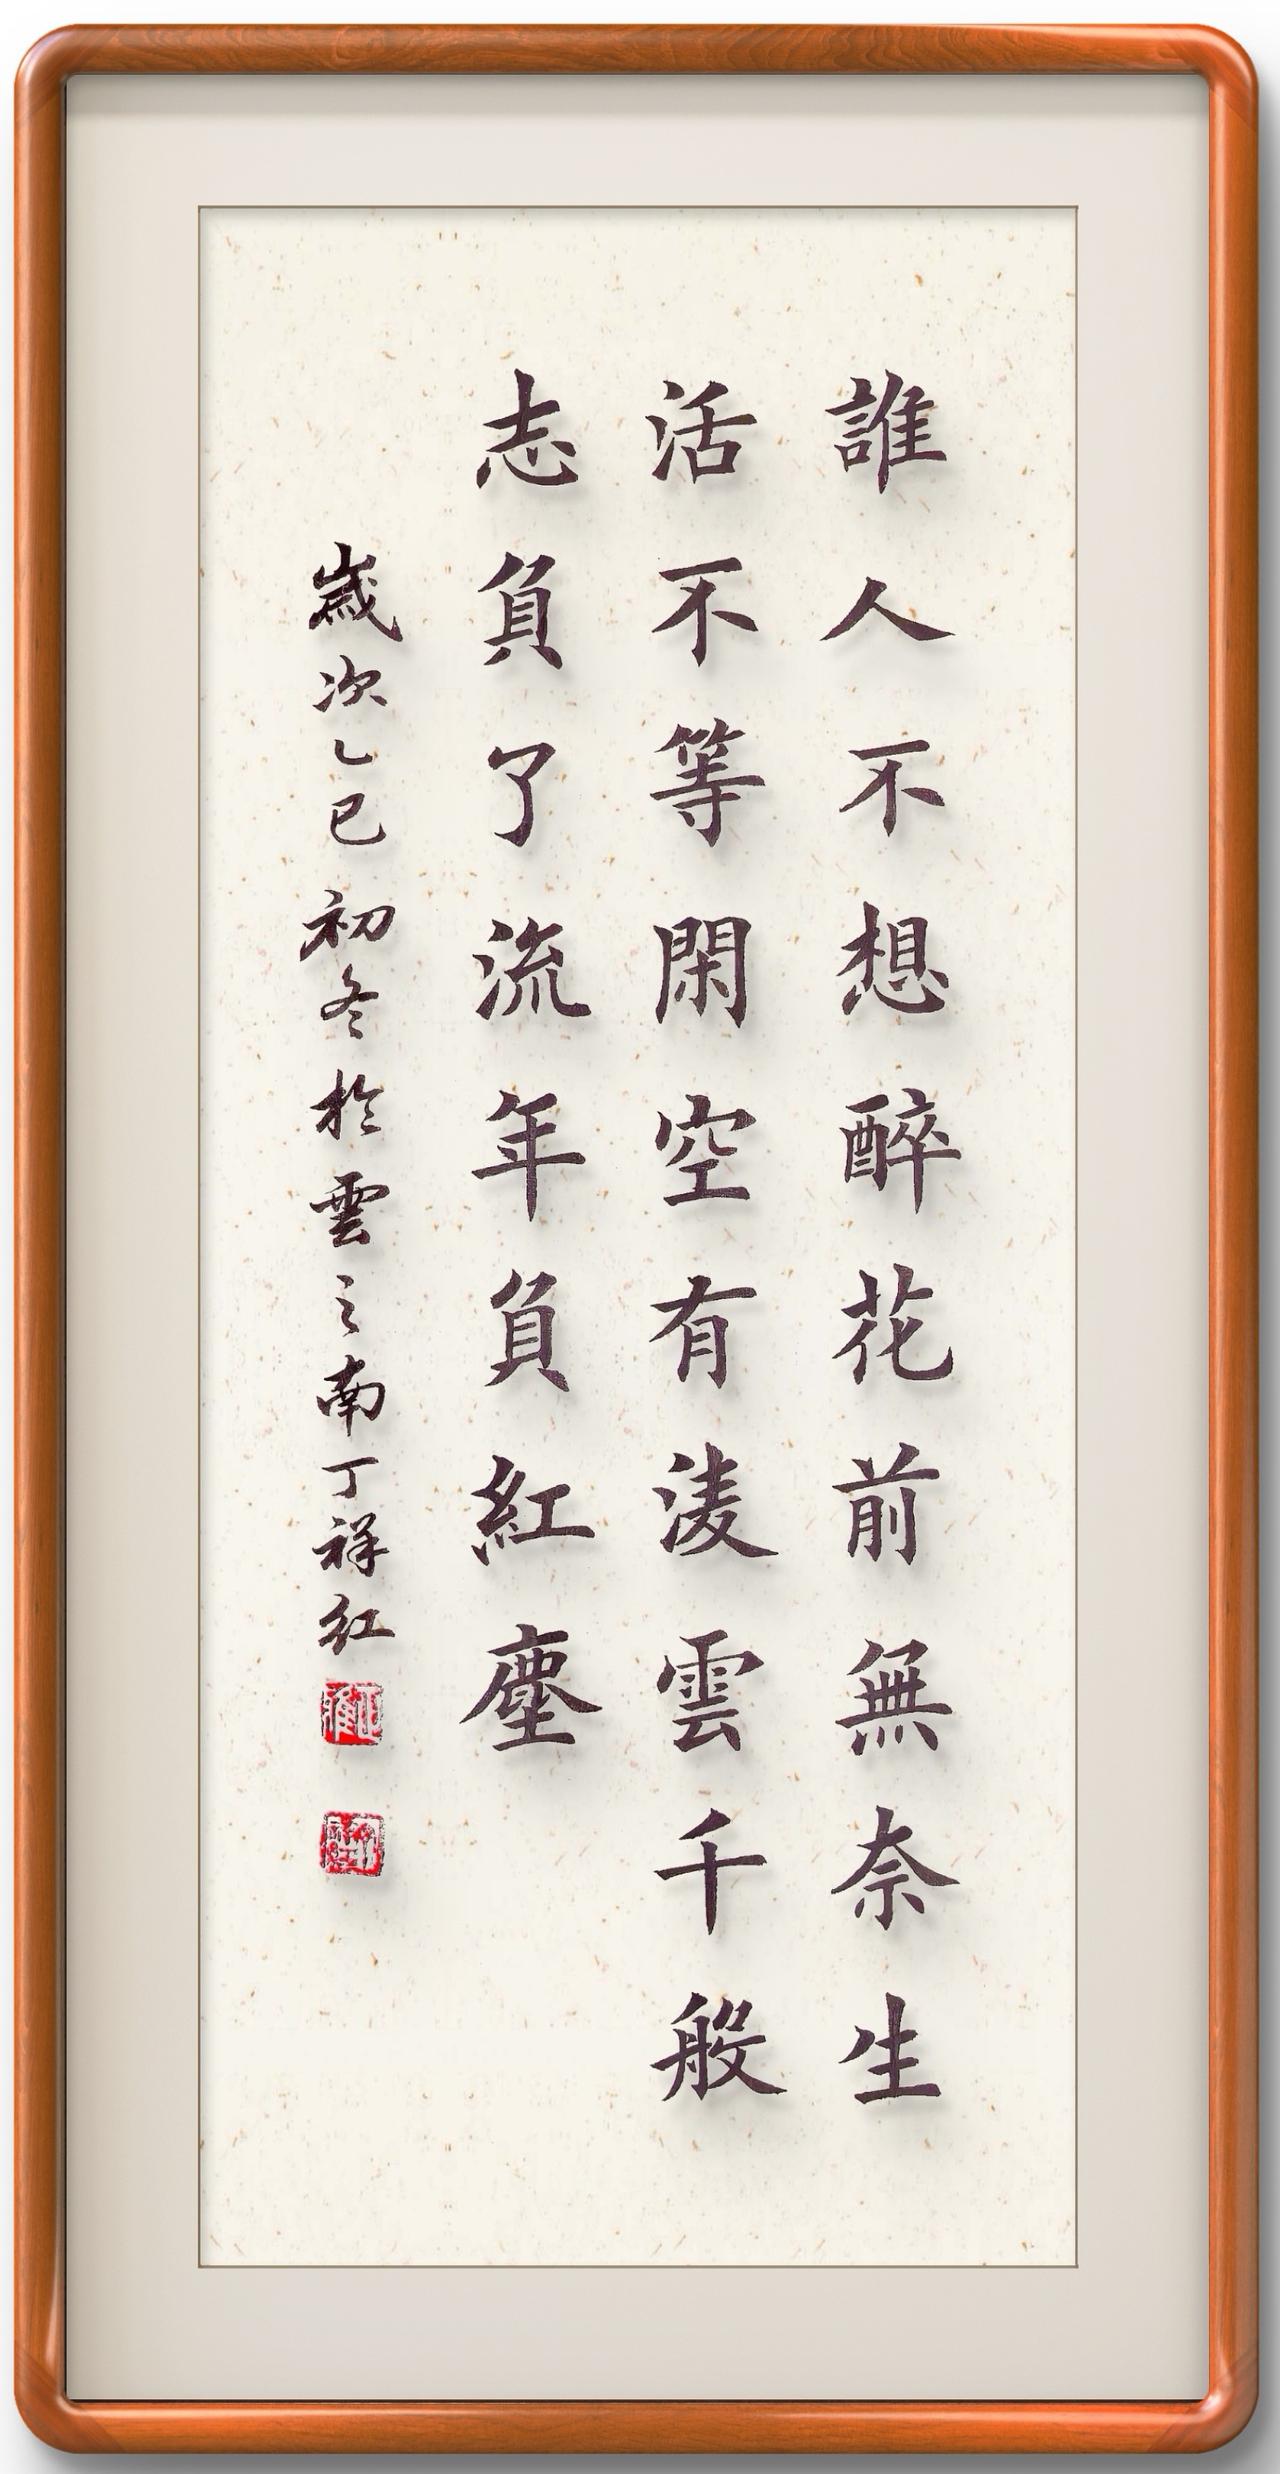 誰人不想醉花前無奈生
活不等閑空有淩雲千般
志負了流年負紅塵
歲次乙巳初冬於雲之南丁祥红